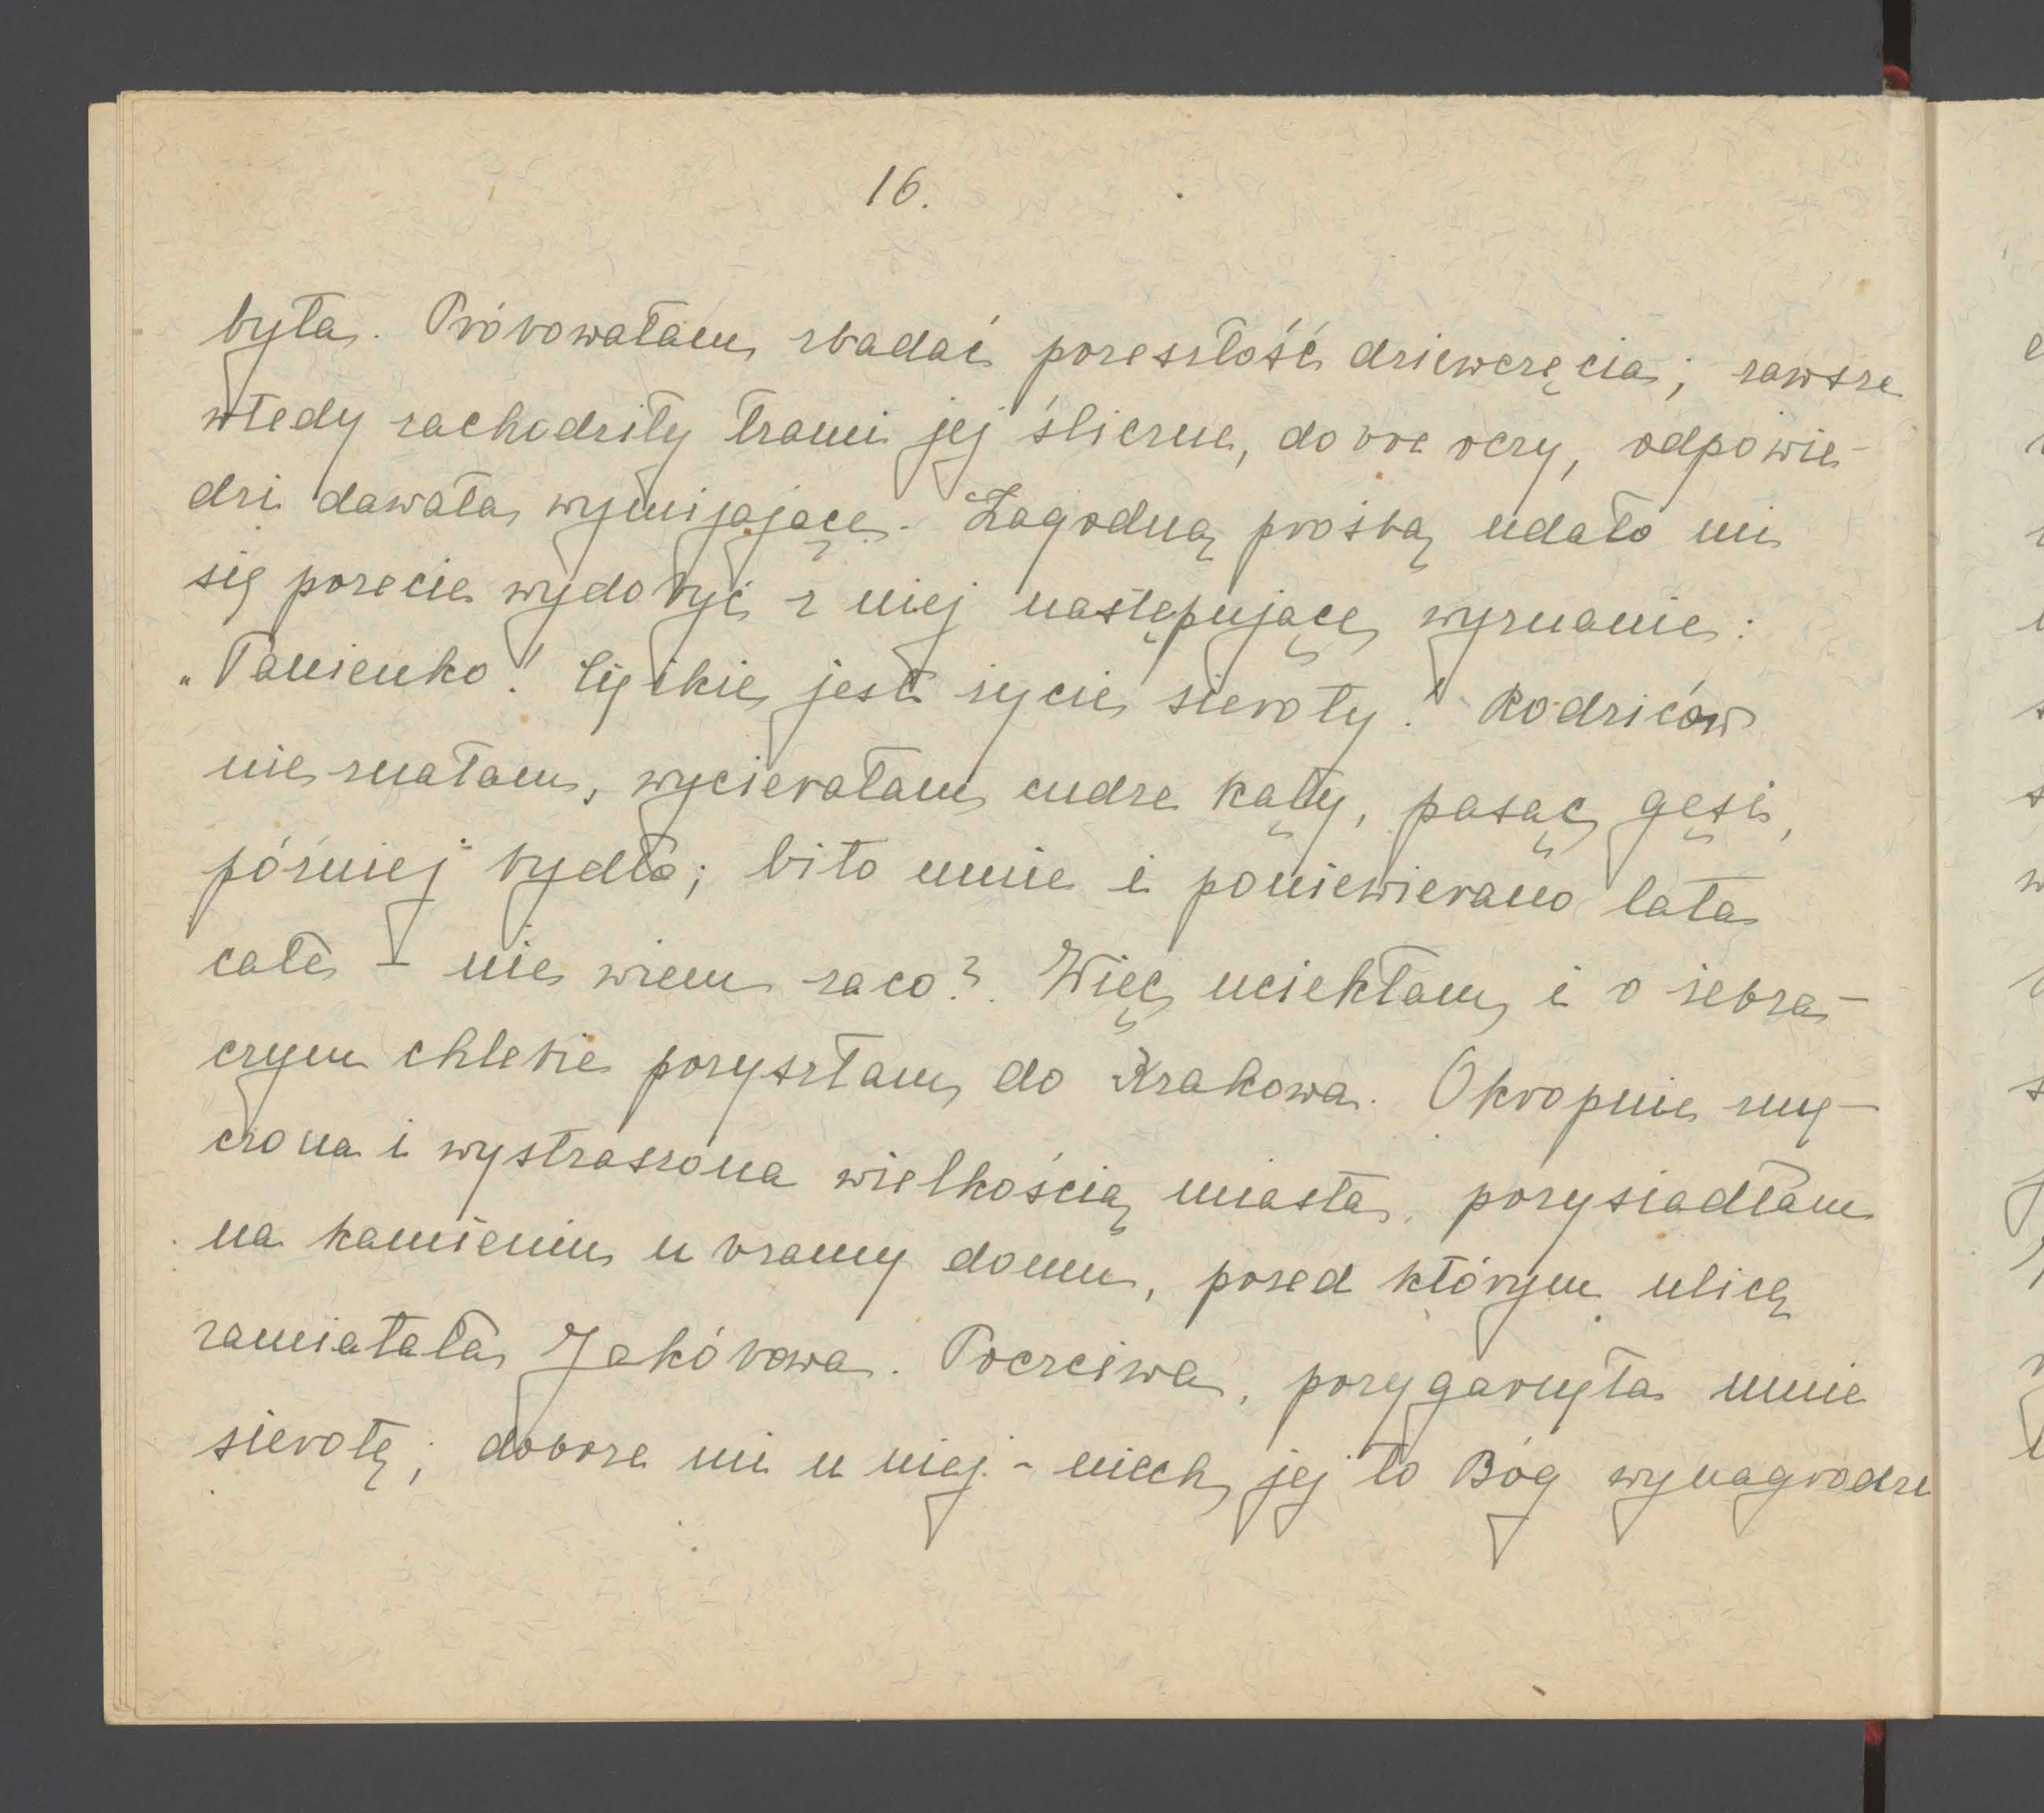 16.
była. Próbowałam zbadać przeszłość dziewczęcia; zawsze
wtedy zachodziły łzami jej śliczne, dobre oczy, odpowie-
dzi dawała wymijające. Łagodną prośbą udało mi
się przecie wydobyć z niej następujące wyznanie:
„Panienko! Ciężkie jest życie sieroty! Rodziców
nie znałam, wycierałam cudze kąty, pasąc gęsi,
później bydło; bito mnie i poniewierano lata
całe – nie wiem zaco?. Więc uciekłam, i o żebra-
czym chlebie przyszłam do Krakowa. Okropnie zmę-
czona i wystraszona wielkością miasta, przysiadłam
na kamieniu u bramy domu, przed którym ulicę
zamiatała Jakóbowa. Poczciwa, przygarnęła mnie
sierotę; dobrze mi u niej – niech jej to Bóg wynagrodzi